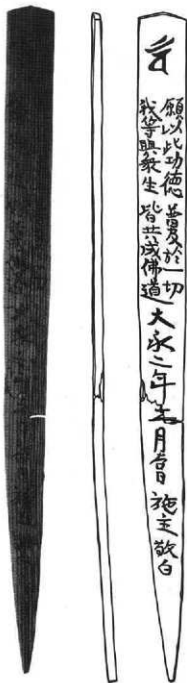 願以此功德 普及於一切
我等與衆生 皆共成佛道
大永二年月吉日 施主 敬白